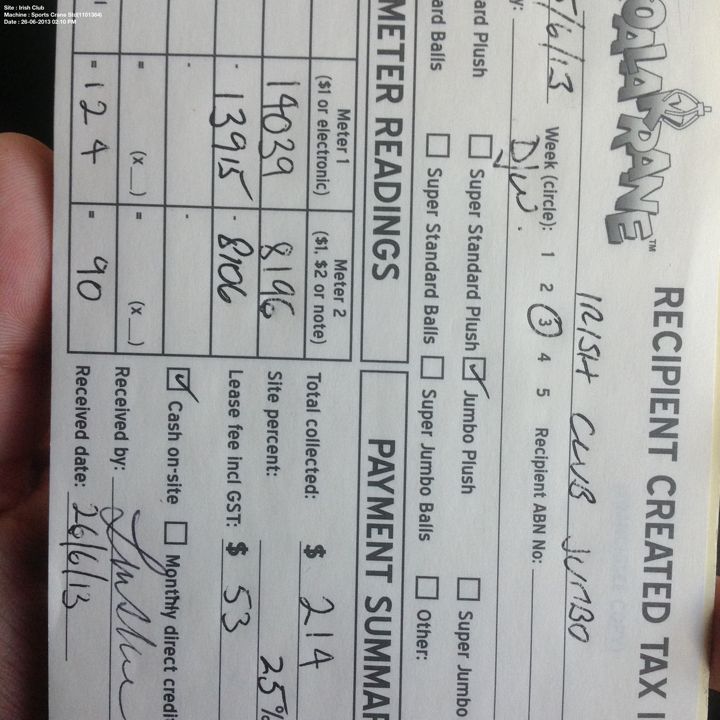 Site : Irish Club
Machine : Sports Crane Std(1101364)
Date : 26-06-2013 02:10 PM
KOALA KRANE™
RECIPIENT CREATED TAX I
IRISH CLUB JUMBO
/6/13 Week (circle): 1 2 3 4 5 Recipient ABN No:
y: D/W.
ard Plush Super Standard Plush Jumbo Plush Super Jumbo
ard Balls Super Standard Balls Super Jumbo Balls Other:
METER READINGS
Meter 1 ($1 or electronic) Meter 2 ($1, $2 or note)
14039 8196
- 13915 - 8106
- -
= (x__) = (x__)
= 124 = 90
PAYMENT SUMMAR
Total collected: $ 214
Site percent: 25%
Lease fee incl GST: $ 53
Cash on-site Monthly direct credi
Received by:
Received date: 26/6/13